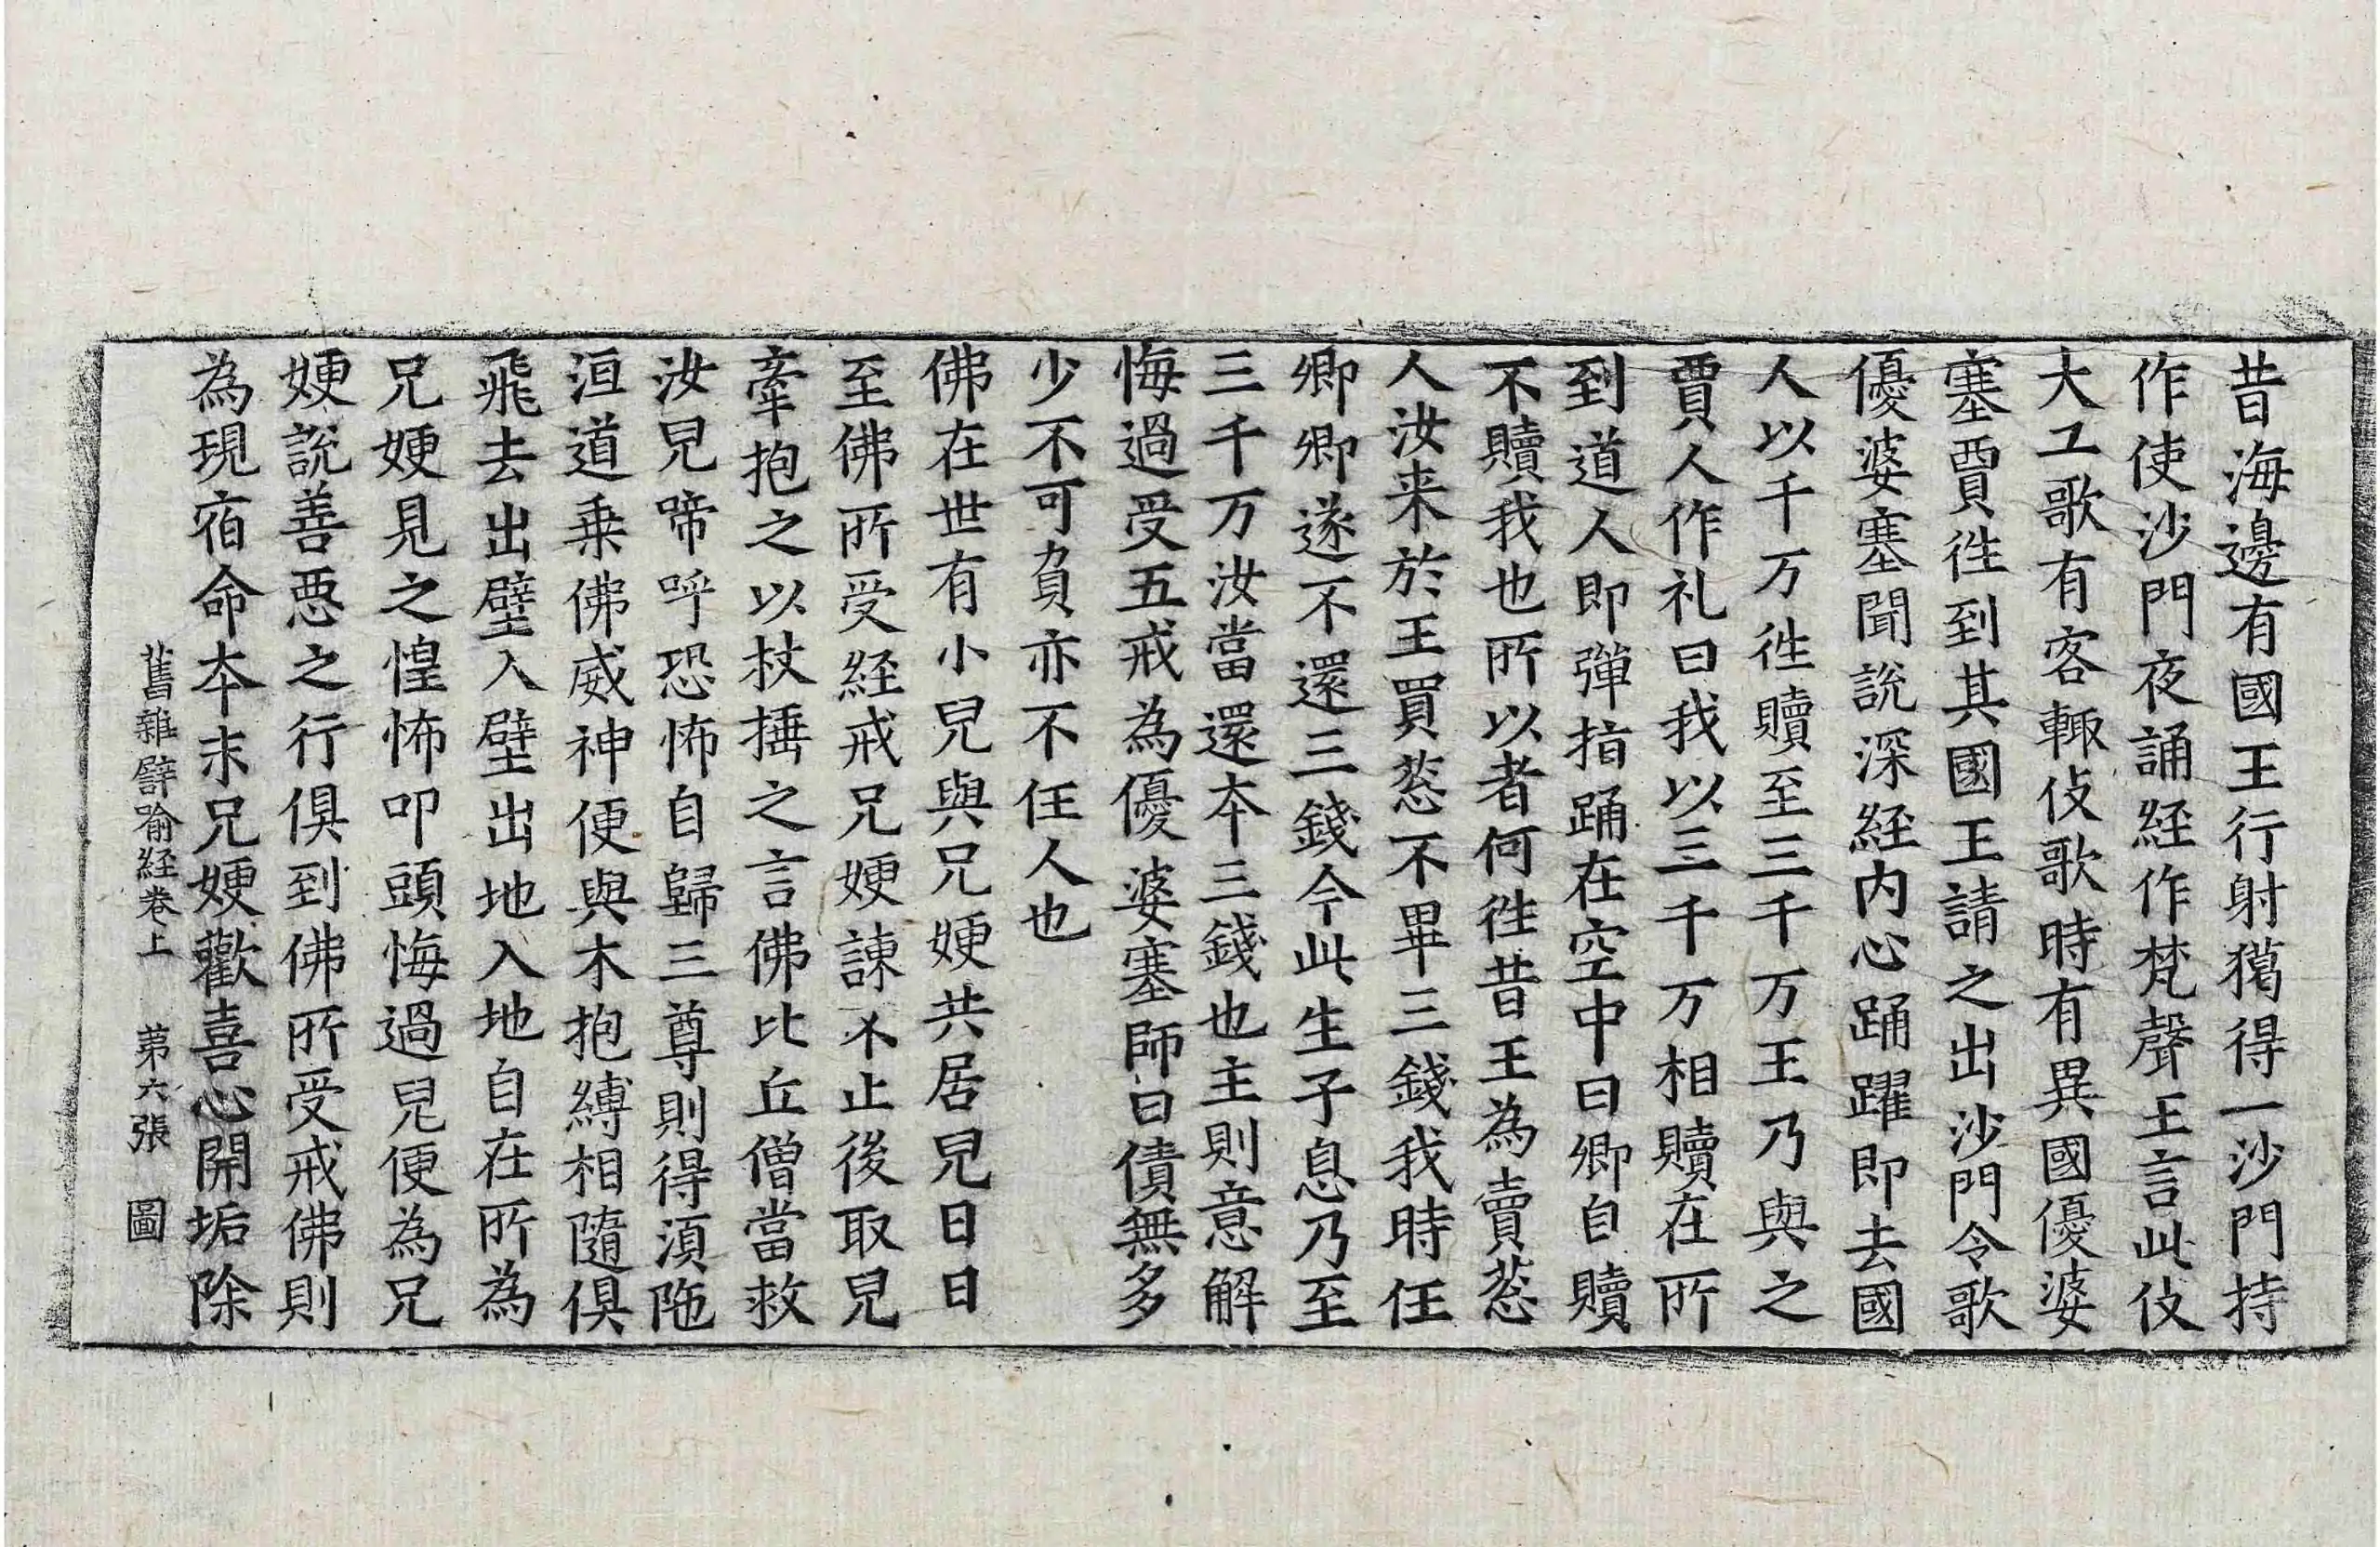 昔海邊有國王行射獦得一沙門持
作使沙門夜誦経作梵聲王言此伎
大工歌有客輙伎歌時有異國優婆
塞賈徃到其國王請之出沙門令歌
優婆塞聞說深経内心踊躍即去國
人以千万徃贖至三千万王乃與之
賈人作礼曰我以三千万相贖在所
到道人即彈指踊在空中曰卿自贖
不贖我也所以者何徃昔王為賣葱
人汝来於王買葱不畢三錢我時任
卿卿遂不還三錢今此生子息乃至
三千万汝當還本三錢也主則意解
悔過受五戒為優婆塞師曰債無多
少不可負亦不任人也
佛在世有小兒與兄㛐共居兒日日
至佛所受経戒兄㛐諫不止後取兒
牽抱之以杖捶之言佛比丘僧當救
汝兒啼呼恐怖自歸三尊則得湏陁
洹道乗佛威神便與木抱縛相隨俱
飛去出壁入壁出地入地自在所為
兄㛐見之惶怖叩頭悔過兒便為兄
㛐說善惡之行俱到佛所受戒佛則
為現宿命本末兄㛐歡喜心開垢除
舊雜譬喻経卷上 苐六張 圖